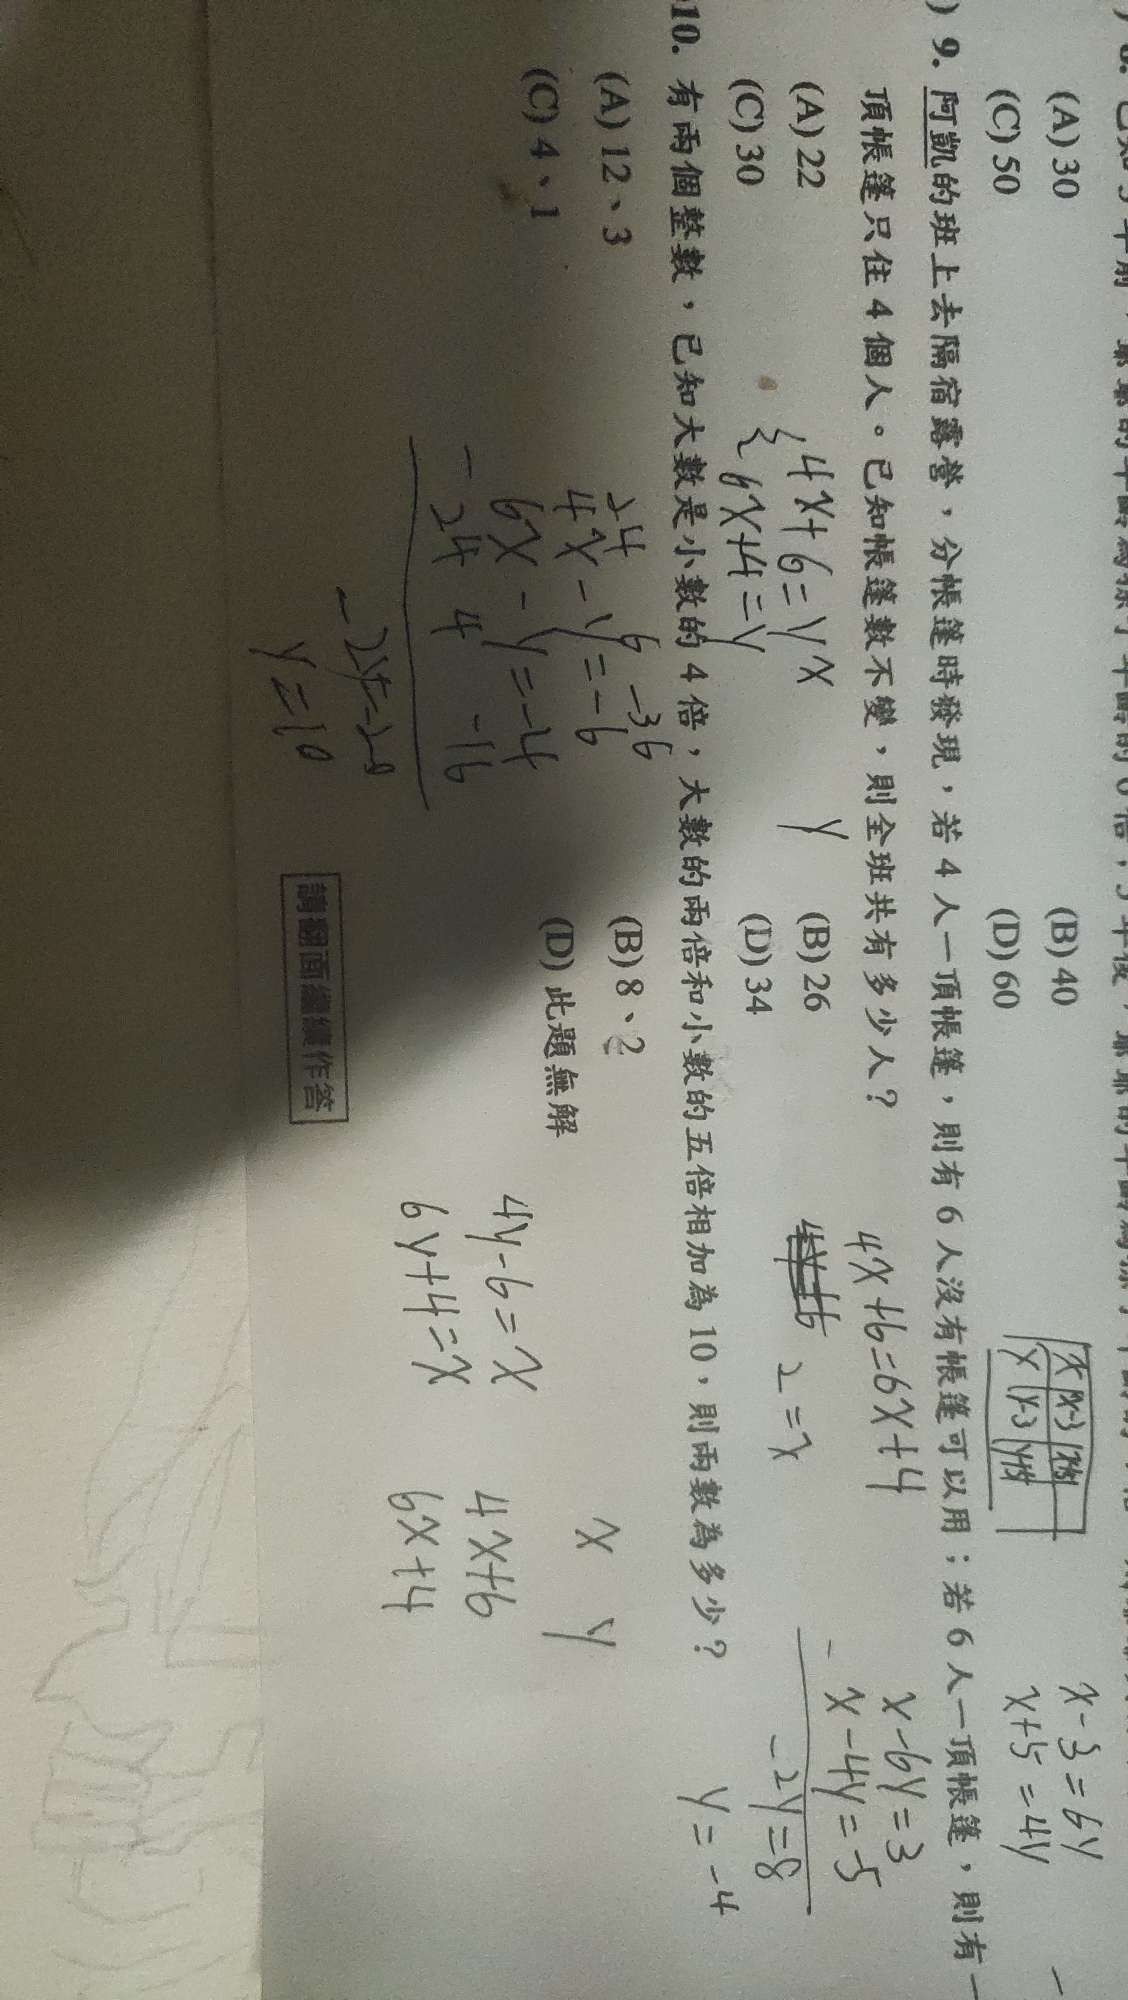 (A) 30
(B) 40
(C) 50
(D) 60
x-3=6y
x+5=4y
) 9. 阿凱的班上去隔宿露營，分帳篷時發現，若 4 人一頂帳篷，則有 6 人沒有帳篷可以用；若 6 人一頂帳篷，則有一
頂帳篷只住 4 個人。已知帳篷數不變，則全班共有多少人？
(A) 22
(B) 26
(C) 30
(D) 34
4x+6=y
6x+4=y
x
y
4x+6=6x+4
2=x
x-6y=3
x-4y=-5
-2y=8
y=-4
10. 有兩個整數，已知大數是小數的 4 倍，大數的兩倍和小數的五倍相加為 10，則兩數為多少？
(A) 12、3
(B) 8、2
(C) 4、1
(D) 此題無解
24 6 -36
4x-y=-6
6x-y=-4
- 24 4 -16
y=10
4y-6=x
6y+4=x
x y
4x+6
6x+4
請翻面繼續作答